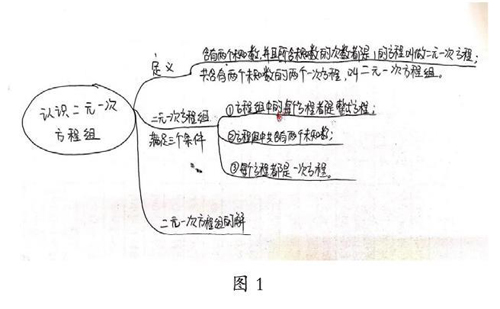 认识二元一次
方程组
定义
含有两个未知数,并且所含未知数的次数都是1的方程叫做二元一次方程;
共含有两个未知数的两个一次方程,叫二元一次方程组。
二元一次方程组
满足三个条件
①方程组中的每个方程都是整式方程;
②方程组中共含有两个未知数;
③每个方程都是一次方程。
二元一次方程组的解
图 1